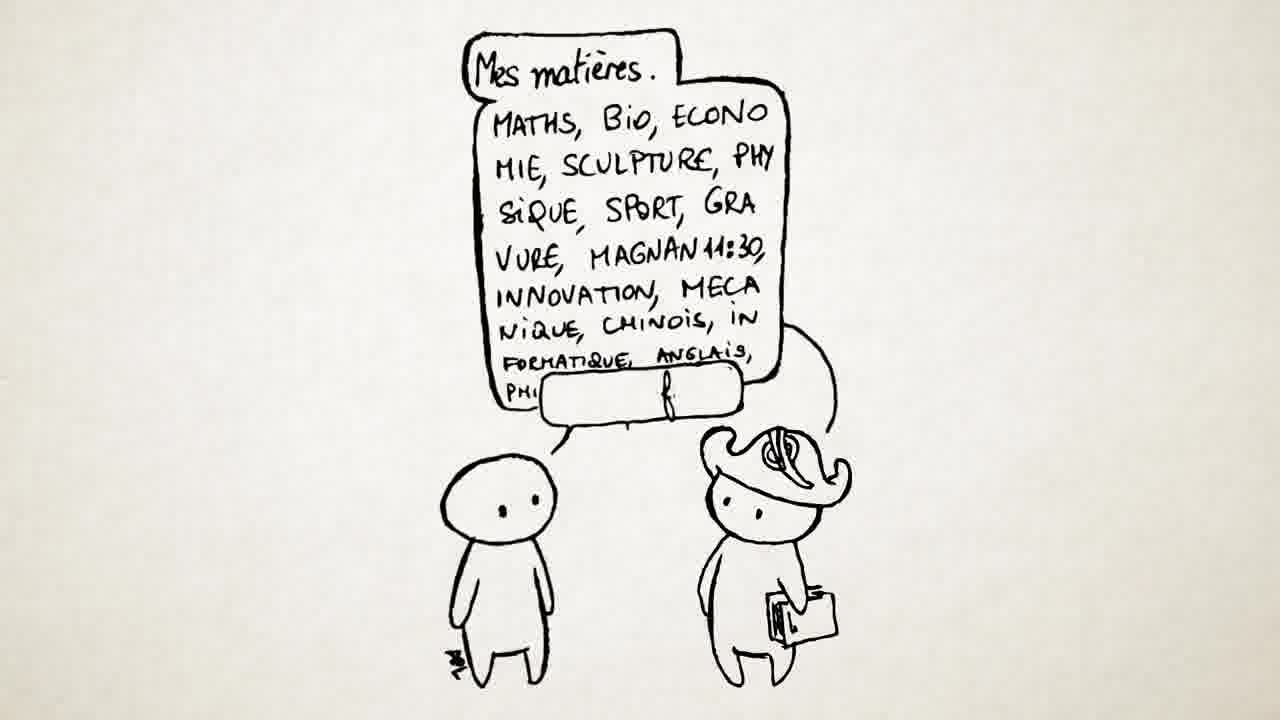 Mes matières.
MATHS, BiO, ECONO
MIE, SCULPTURE, PHY
SiQUE, SPORT, GRA
VURE, MAGNAN 11:30,
INNOVATION, MECA
NiQUE, CHINOiS, iN
FORMATIQUE, ANGLAiS,
PHi
f